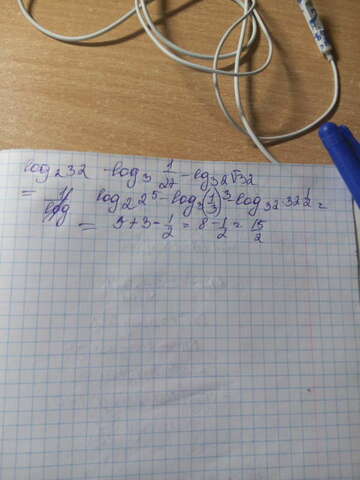 log₂32 - log₃ 1/27 - log₃₂√32
= log₂2⁵ - log₃(1/3)³ - log₃₂ 32^1/2 =
= 5 + 3 - 1/2 = 8 - 1/2 = 15/2